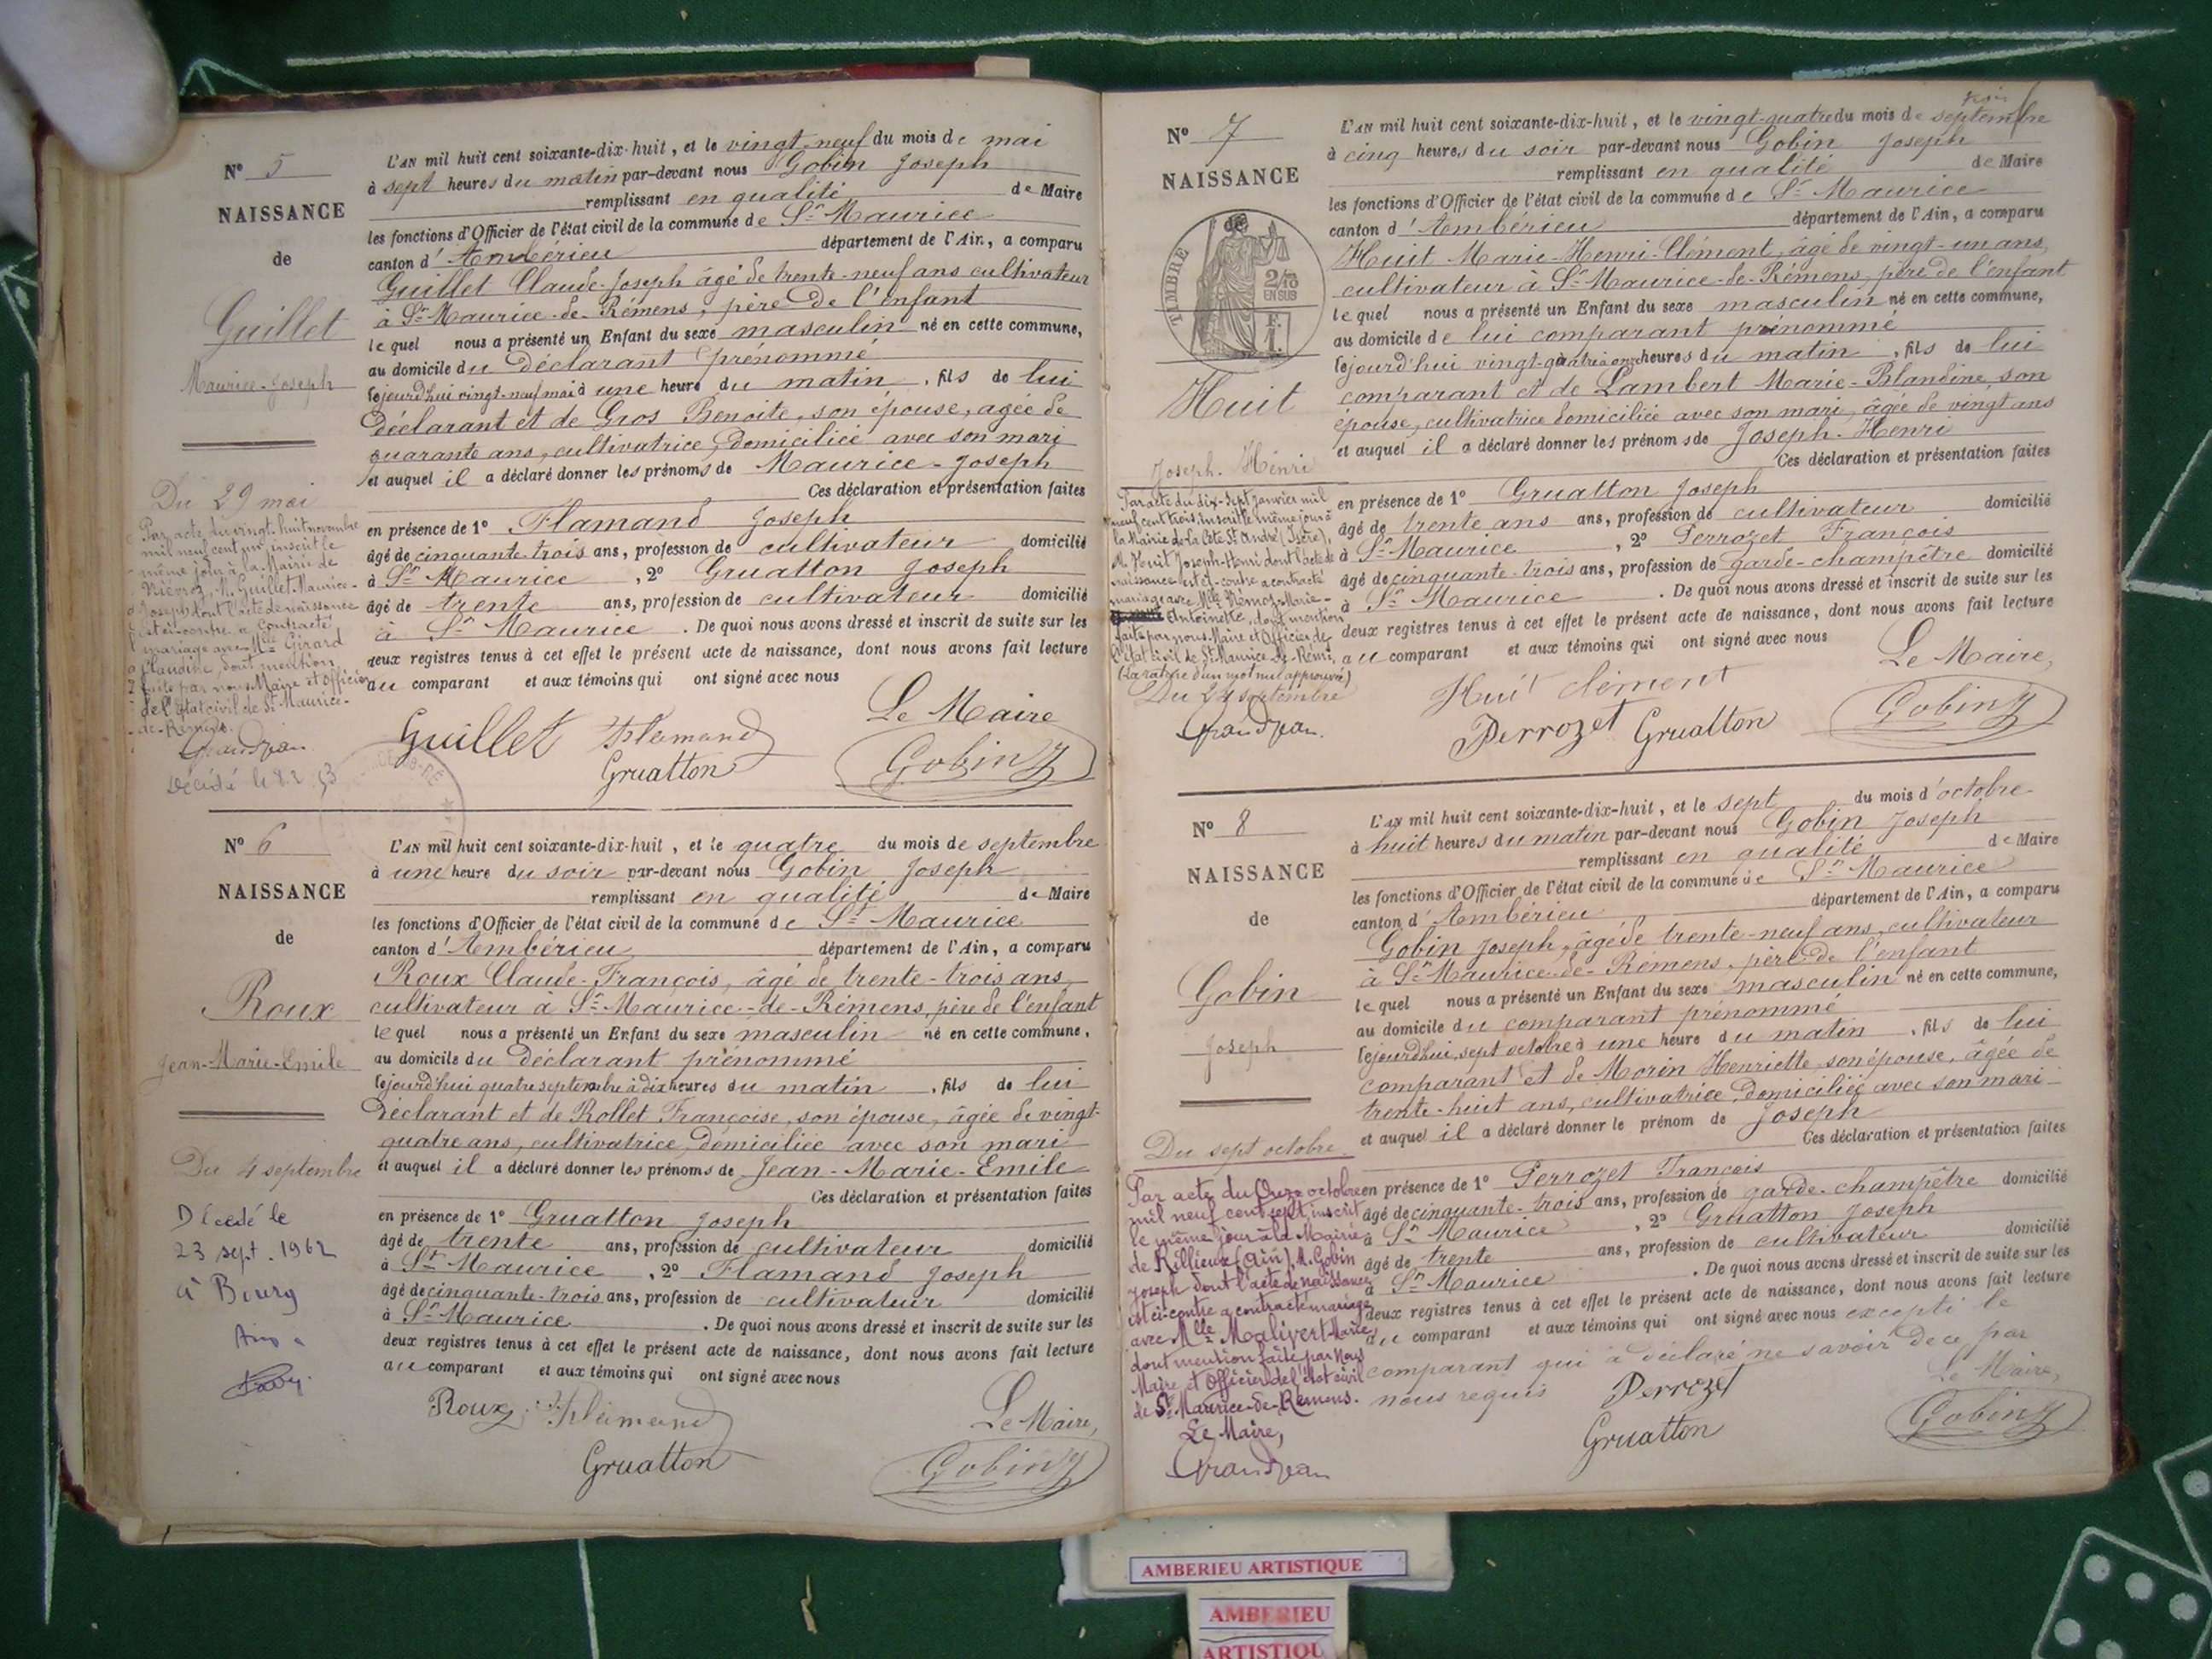 N° 5
NAISSANCE
de
Guillet
Maurice-Joseph
Du 29 mai
Par acte du vingt-huit novembre
mil neuf cent un, inscrit le
même jour à la Mairie de
Niévroz, M. Guillet Maurice-
Joseph dont l'acte de naissance
est ci-contre a contracté
mariage avec Mlle Girard
Claudine, dont mention
faite par nous Maire et Officier
de l'état civil de St Maurice-
de-Rémens.
Grandjean
Décédé le 8.2.53
L'AN mil huit cent soixante-dix-huit, et le vingt-neuf du mois de mai
à sept heures du matin par-devant nous Gobin Joseph
remplissant en qualité de Maire
les fonctions d'Officier de l'état civil de la commune de St Maurice
canton d'Ambérieu département de l'Ain, a comparu
Guillet Claude-Joseph âgé de trente-neuf ans cultivateur
à St Maurice-de-Rémens, père de l'enfant
lequel nous a présenté un Enfant du sexe masculin né en cette commune,
au domicile du déclarant prénommé
cejourd'hui vingt-neuf mai à une heure du matin, fils de lui
déclarant et de Gros Benoite, son épouse, agée de
quarante ans, cultivatrice, domiciliée avec son mari
et auquel il a déclaré donner les prénoms de Maurice-Joseph
Ces déclaration et présentation faites
en présence de 1° Flamand Joseph
âgé de cinquante-trois ans, profession de cultivateur domicilié
à St Maurice, 2° Gruatton Joseph
âgé de trente ans, profession de cultivateur domicilié
à St Maurice. De quoi nous avons dressé et inscrit de suite sur les
deux registres tenus à cet effet le présent acte de naissance, dont nous avons fait lecture
au comparant et aux témoins qui ont signé avec nous
Le Maire
Guillet Flamand
Gruatton Gobin J
N° 6
NAISSANCE
de
Roux
Jean-Marie-Emile
Du 4 septembre
Décédé le
23 sept. 1962
à Bourg
L'AN mil huit cent soixante-dix-huit, et le quatre du mois de septembre
à une heure du soir par-devant nous Gobin Joseph
remplissant en qualité de Maire
les fonctions d'Officier de l'état civil de la commune de St Maurice
canton d'Ambérieu département de l'Ain, a comparu
Roux Claude-François, âgé de trente-trois ans
cultivateur à St Maurice-de-Rémens, père de l'enfant
lequel nous a présenté un Enfant du sexe masculin né en cette commune,
au domicile du déclarant prénommé
cejourd'hui quatre septembre à dix heures du matin, fils de lui
déclarant et de Rollet Françoise, son épouse, âgée de vingt-
quatre ans, cultivatrice, domiciliée avec son mari
et auquel il a déclaré donner les prénoms de Jean-Marie-Emile
Ces déclaration et présentation faites
en présence de 1° Gruatton Joseph
âgé de trente ans, profession de cultivateur domicilié
à St Maurice, 2° Flamand Joseph
âgé de cinquante-trois ans, profession de cultivateur domicilié
à St Maurice. De quoi nous avons dressé et inscrit de suite sur les
deux registres tenus à cet effet le présent acte de naissance, dont nous avons fait lecture
au comparant et aux témoins qui ont signé avec nous
Roux Flamand Le Maire,
Gruatton Gobin J
N° 7
NAISSANCE
TIMBRE
2/10
EN SUS
F.
1.
Huit
Joseph-Henri
Par acte du dix-sept janvier mil
neuf cent trois, inscrit le même jour à
la Mairie de la Côte St André (Isère),
M. Huit Joseph-Henri dont l'acte de
naissance est ci-contre a contracté
mariage avec Mlle Rémoz Marie-
Antoinette, dont mention
faite par nous Maire et Officier de
l'état civil de St Maurice-de-Rémi,
(La rature d'un mot nul approuvée)
Du 24 septembre
Grandjean.
L'AN mil huit cent soixante-dix-huit, et le vingt-quatre du mois de septembre
à cinq heures du soir par-devant nous Gobin Joseph
remplissant en qualité de Maire
les fonctions d'Officier de l'état civil de la commune de St Maurice
canton d'Ambérieu département de l'Ain, a comparu
Huit Marie-Henri-Clément, âgé de vingt-un ans,
cultivateur à St Maurice-de-Rémens, père de l'enfant
lequel nous a présenté un Enfant du sexe masculin né en cette commune,
au domicile de lui comparant prénommé
cejourd'hui vingt-quatre à onze heures du matin, fils de lui
comparant et de Lambert Marie-Blandine, son
épouse, cultivatrice domiciliée avec son mari, âgée de vingt ans
et auquel il a déclaré donner les prénoms de Joseph-Henri
Ces déclaration et présentation faites
en présence de 1° Gruatton Joseph
âgé de trente ans ans, profession de cultivateur domicilié
à St Maurice, 2° Perrozet François
âgé de cinquante-trois ans, profession de garde-champêtre domicilié
à St Maurice. De quoi nous avons dressé et inscrit de suite sur les
deux registres tenus à cet effet le présent acte de naissance, dont nous avons fait lecture
au comparant et aux témoins qui ont signé avec nous
Le Maire,
Huit clément
Perrozet Gruatton Gobin J
N° 8
NAISSANCE
de
Gobin
Joseph
Du sept octobre
Par acte du Onze octobre
mil neuf cent sept, inscrit
le même jour à la Mairie
de Rillieux (Ain), M. Gobin
Joseph dont l'acte de naissance
est ci-contre a contracté mariage
avec Mlle Malivert Marie
dont mention faite par Nous
Maire et Officier de l'état civil
de St Maurice-de-Rémens.
Le Maire,
Grandjean
L'AN mil huit cent soixante-dix-huit, et le sept du mois d'octobre
à huit heures du matin par-devant nous Gobin Joseph
remplissant en qualité de Maire
les fonctions d'Officier de l'état civil de la commune de St Maurice
canton d'Ambérieu département de l'Ain, a comparu
Gobin Joseph, âgé de trente-neuf ans, cultivateur
à St Maurice-de-Rémens, père de l'enfant
lequel nous a présenté un Enfant du sexe masculin né en cette commune,
au domicile du comparant prénommé
cejourd'hui, sept octobre à une heure du matin, fils de lui
comparant et de Morin Henriette, son épouse, âgée de
trente-huit ans, cultivatrice, domiciliée avec son mari
et auquel il a déclaré donner le prénom de Joseph
Ces déclaration et présentation faites
en présence de 1° Perrozet François
âgé de cinquante-trois ans, profession de garde-champêtre domicilié
à St Maurice, 2° Gruatton Joseph
âgé de trente ans, profession de cultivateur domicilié
à St Maurice. De quoi nous avons dressé et inscrit de suite sur les
deux registres tenus à cet effet le présent acte de naissance, dont nous avons fait lecture
au comparant et aux témoins qui ont signé avec nous excepté le
comparant qui a déclaré ne savoir de ce par
nous requis Perrozet Le Maire,
Gruatton Gobin J
AMBERIEU ARTISTIQUE
AMBERIEU
ARTISTIQU